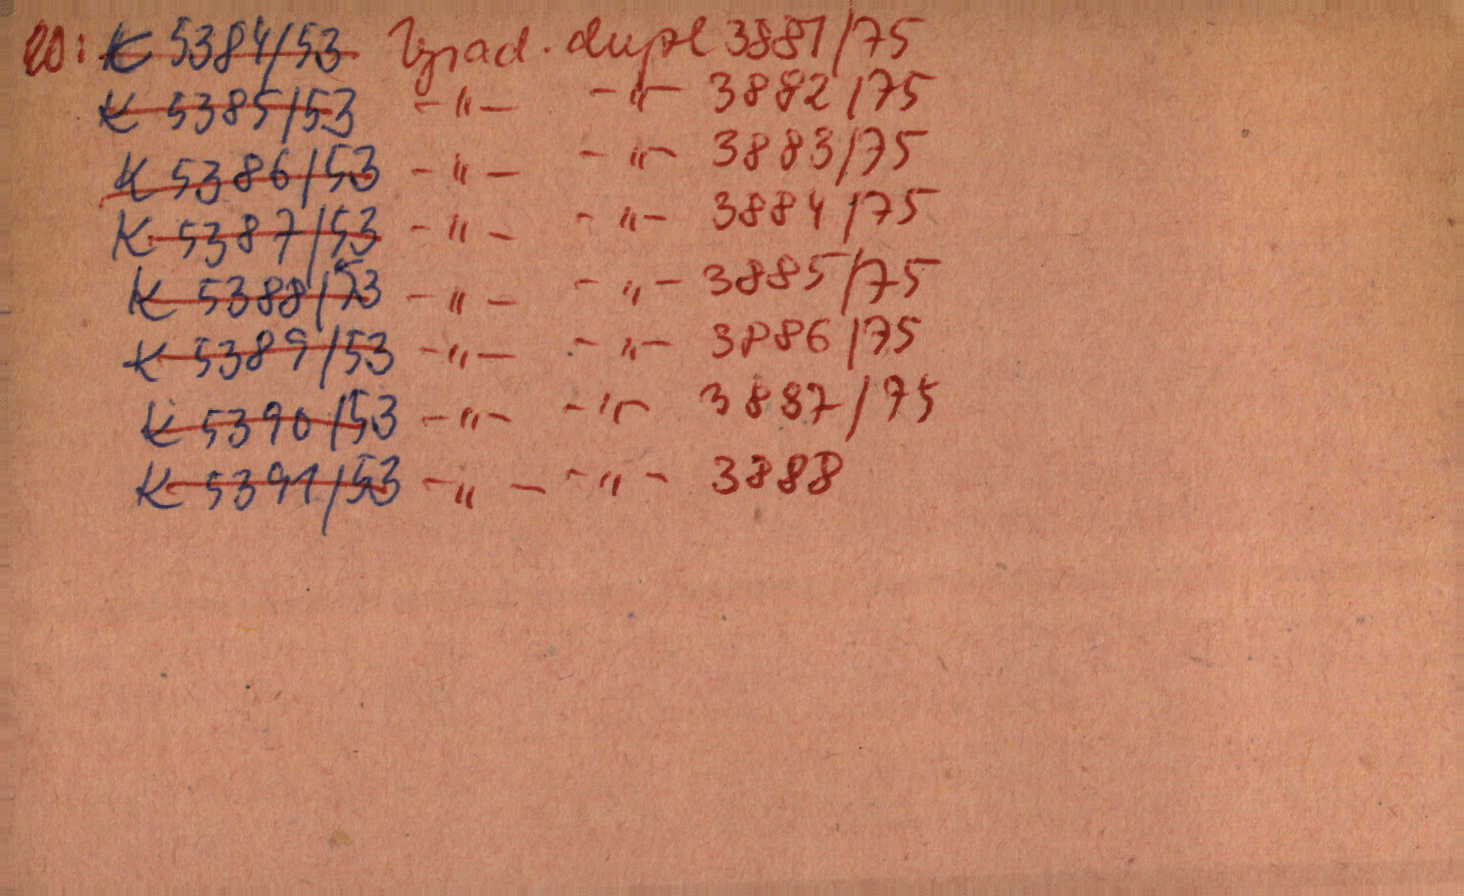 20: K 5384/53 Vyrad. dupl 3881/75
K 5385/53 -"- -"- 3882/75
K 5386/53 -"- -"- 3883/75
K 5387/53 -"- -"- 3884/75
K 5388/53 -"- -"- 3885/75
K 5389/53 -"- -"- 3886/75
K 5390/53 -"- -"- 3887/75
K 5391/53 -"- -"- 3888